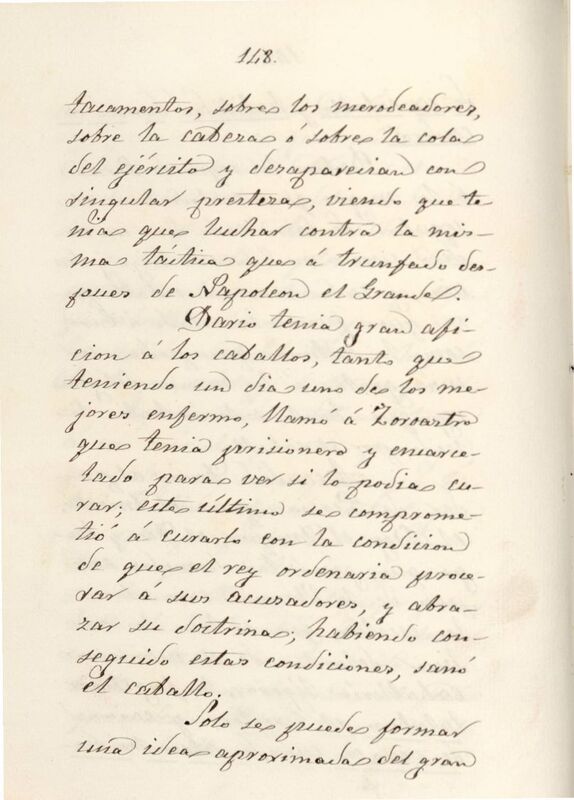 148.
tacamentos, sobre los merodeadores,
sobre la cabeza ó sobre la cola
del ejército y desaparecian con
singular presteza, viendo que te
nia que luchar contra la mis-
ma táctica que á triunfado des-
pues de Napoleon el Grande.
Dario tenia gran afi-
cion á los caballos, tanto que
teniendo un dia uno de los me-
jores enfermo, llamó á Zoroastro
que tenia prisionero y encarce-
lado para ver si lo podia cu-
rar; este último se comprome-
tió á curarlo con la condicion
de que el rey ordenaria proce-
rar á sus acusadores, y abra-
zar su doctrina; habiendo con-
seguido estas condiciones, sanó
el caballo.
Solo se puede formar
una idea aproximada del gran